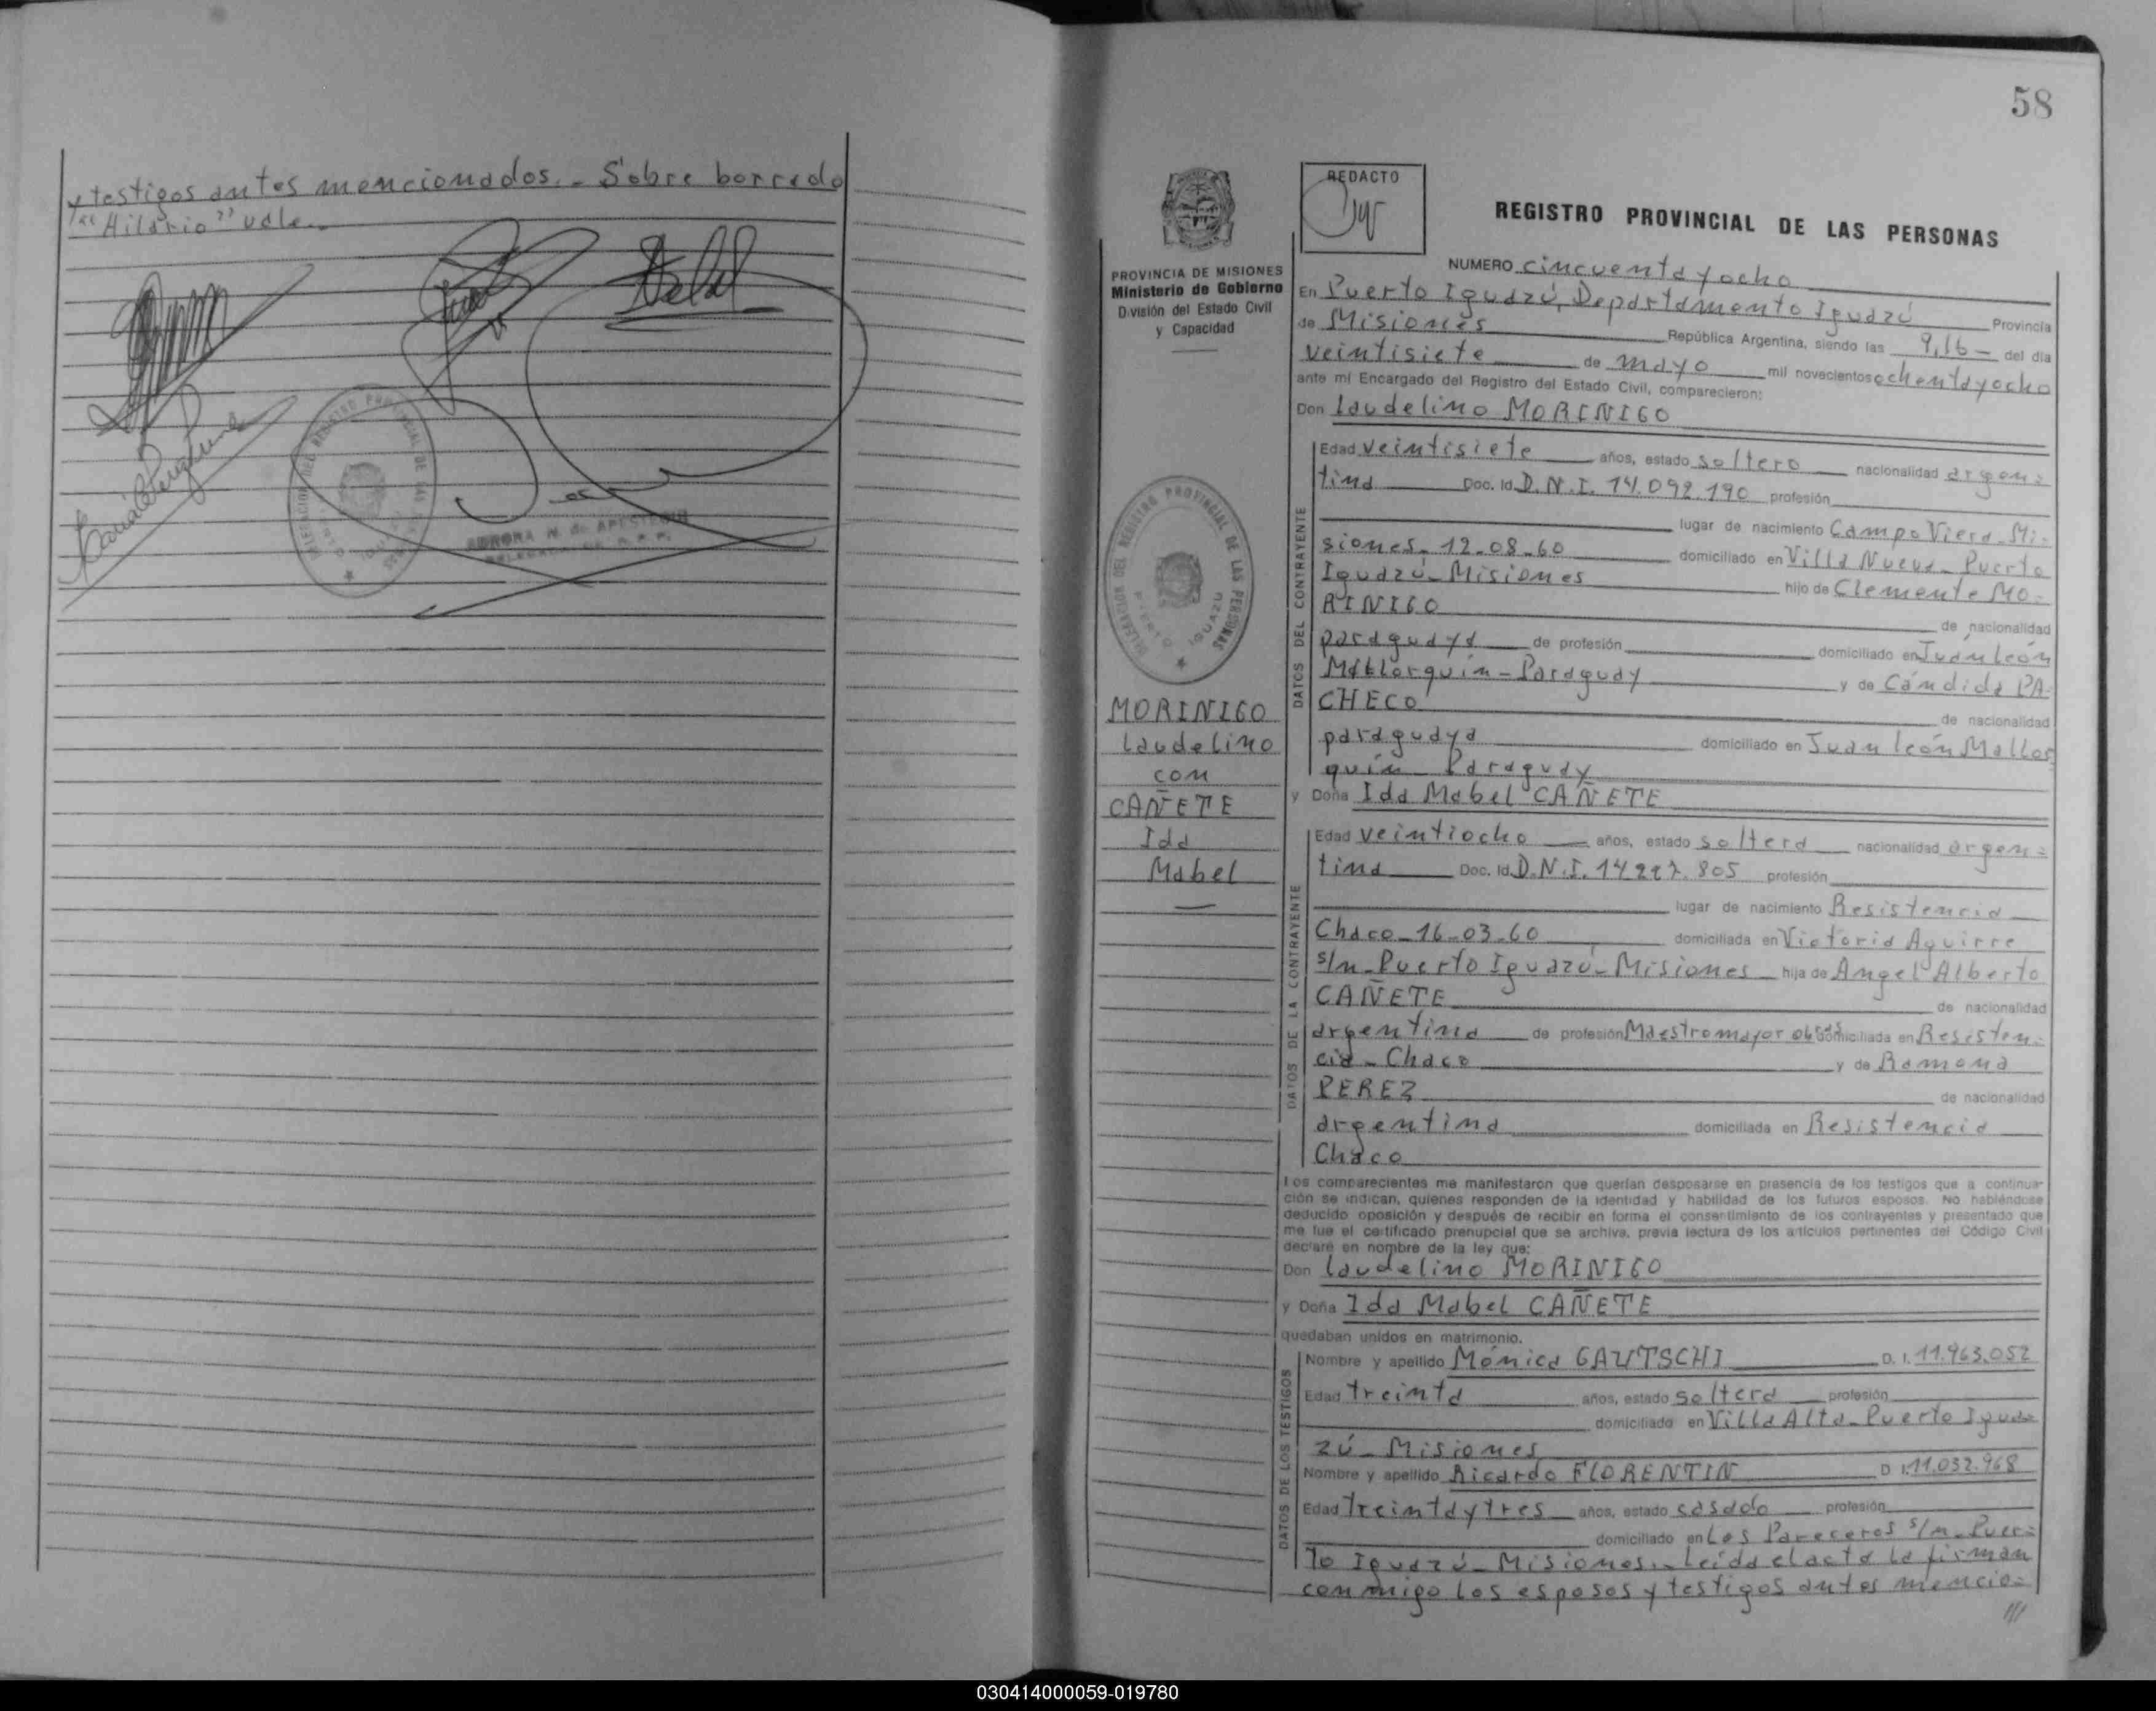 y testigos antes mencionados.- Sobre borrado
"Hilario" vale.-
DELEGACION DEL REGISTRO PROVINCIAL DE LAS PERSONAS
AURORA N. de APESTEGUI
58
REDACTO
REGISTRO PROVINCIAL DE LAS PERSONAS
PROVINCIA DE MISIONES
Ministerio de Gobierno
División del Estado Civil
y Capacidad
DELEGACION DEL REGISTRO PROVINCIAL DE LAS PERSONAS
PUERTO IGUAZU
MORINIGO
Laudelino
con
CAÑETE
Ida
Mabel
NUMERO cincuenta y ocho
En Puerto Iguazú, Departamento Iguazú Provincia
de Misiones República Argentina, siendo las 9,16 - del día
veintisiete de mayo mil novecientos ochenta y ocho
ante mí Encargado del Registro del Estado Civil, comparecieron:
Don Laudelino MORINIGO
DATOS DEL CONTRAYENTE
Edad veintisiete años, estado soltero nacionalidad argen=
tina Doc. Id. D.N.I. 14.092.190 profesión
lugar de nacimiento Campo Viera-Mi=
siones- 12-08-60 domiciliado en Villa Nueva- Puerto
Iguazú- Misiones hijo de Clemente MO=
RINIGO de nacionalidad
paraguaya de profesión domiciliado en Juan León
Mallorquín - Paraguay y de Cándida PA=
CHECO de nacionalidad
paraguaya domiciliado en Juan León Mallor
quín Paraguay
y Doña Ida Mabel CAÑETE
DATOS DE LA CONTRAYENTE
Edad veintiocho años, estado soltera nacionalidad argen=
tina Doc. Id. D.N.I. 14.227.805 profesión
lugar de nacimiento Resistencia
Chaco- 16-03-60 domiciliada en Victoria Aguirre
s/n- Puerto Iguazú- Misiones hija de Angel Alberto
CAÑETE de nacionalidad
argentina de profesión Maestro mayor obras domiciliada en Resisten=
cia - Chaco y de Ramona
PEREZ de nacionalidad
argentina domiciliada en Resistencia
Chaco
Los comparecientes me manifestaron que querían desposarse en presencia de los testigos que a continua-
ción se indican, quienes responden de la identidad y habilidad de los futuros esposos. No habiéndose
deducido oposición y después de recibir en forma el consentimiento de los contrayentes y presentado que
me fue el certificado prenupcial que se archiva, previa lectura de los artículos pertinentes del Código Civil
declaré en nombre de la ley que:
Don Laudelino MORINIGO
y Doña Ida Mabel CAÑETE
quedaban unidos en matrimonio.
DATOS DE LOS TESTIGOS
Nombre y apellido Mónica GAUTSCHI D. I. 11.963.052
Edad treinta años, estado soltera profesión
domiciliado en Villa Alta- Puerto Igua=
zú- Misiones
Nombre y apellido Ricardo FLORENTIN D I. 11.032.968
Edad treinta y tres años, estado casado profesión
domiciliado en Los s/n- Puer=
to Iguazú- Misiones.- Leída el acta la firman
conmigo los esposos y testigos antes mencio=
///
030414000059-019780